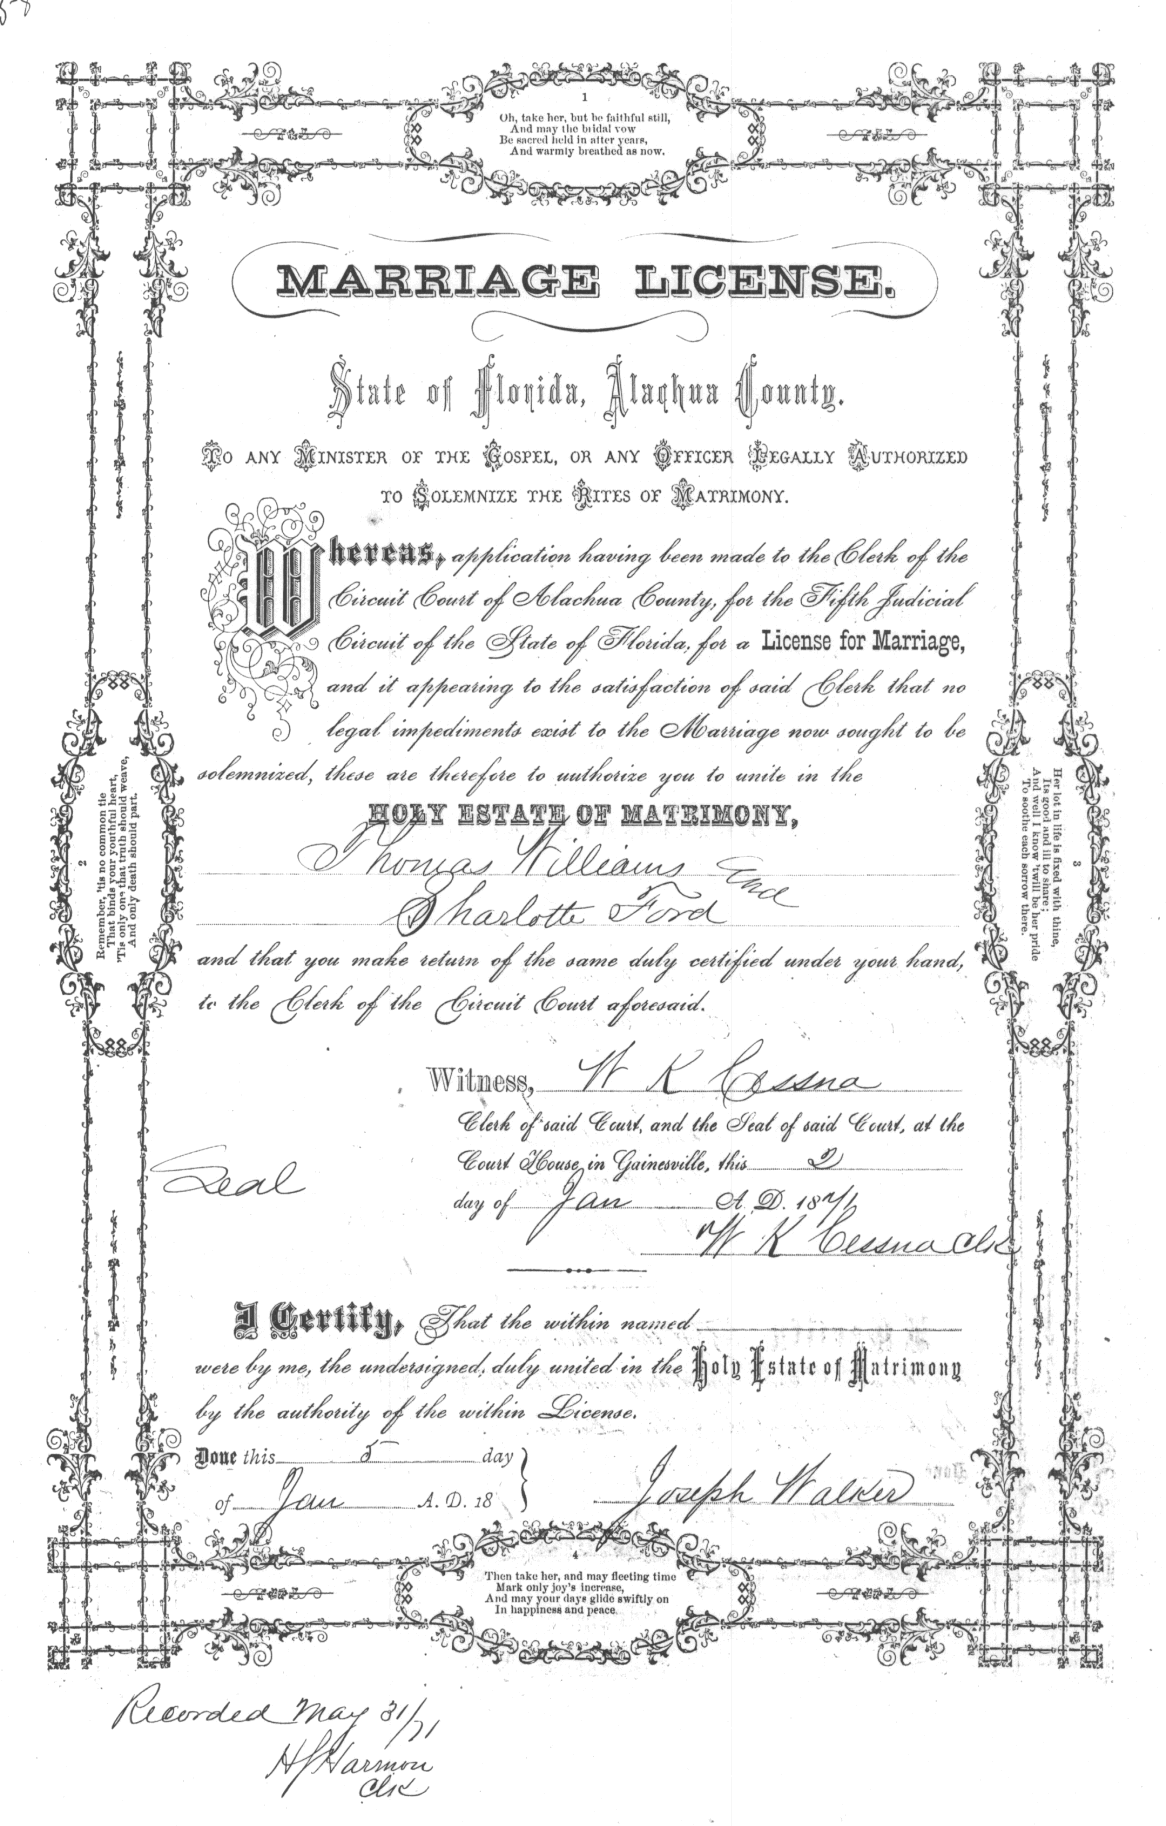 1
Oh, take her, but be faithful still,
And may the bridal vow
Be sacred held in after years,
And warmly breathed as now.
MARRIAGE LICENSE.
State of Florida, Alachua County.
TO ANY MINISTER OF THE GOSPEL, OR ANY OFFICER LEGALLY AUTHORIZED
TO SOLEMNIZE THE RITES OF MATRIMONY.
Whereas, application having been made to the Clerk of the
Circuit Court of Alachua County, for the Fifth Judicial
Circuit of the State of Florida, for a License for Marriage,
and it appearing to the satisfaction of said Clerk that no
legal impediments exist to the Marriage now sought to be
solemnized, these are therefore to authorize you to unite in the
HOLY ESTATE OF MATRIMONY,
Thomas Williams and
Sharlotte Ford
and that you make return of the same duly certified under your hand,
to the Clerk of the Circuit Court aforesaid.
2
Remember, 'tis no common tie
That binds your youthful heart,
'Tis only one that truth should weave,
And only death should part.
3
Her lot in life is fixed with thine,
Its good and ill to share;
And well I know 'twill be her pride
To soothe each sorrow there.
Witness, W K Cessna
Clerk of said Court, and the Seal of said Court, at the
Court House, in Gainesville, this 2
Seal
day of Jan A. D. 1871
W K Cessna Clk
I Certify, That the within named
were by me, the undersigned, duly united in the Holy Estate of Matrimony
by the authority of the within License.
Done this 5 day
of Jan A. D. 18
Joseph Walker
4
Then take her, and may fleeting time
Mark only joy's increase,
And may your days glide swiftly on
In happiness and peace.
Recorded May 31/71
H J Harmon
Clk